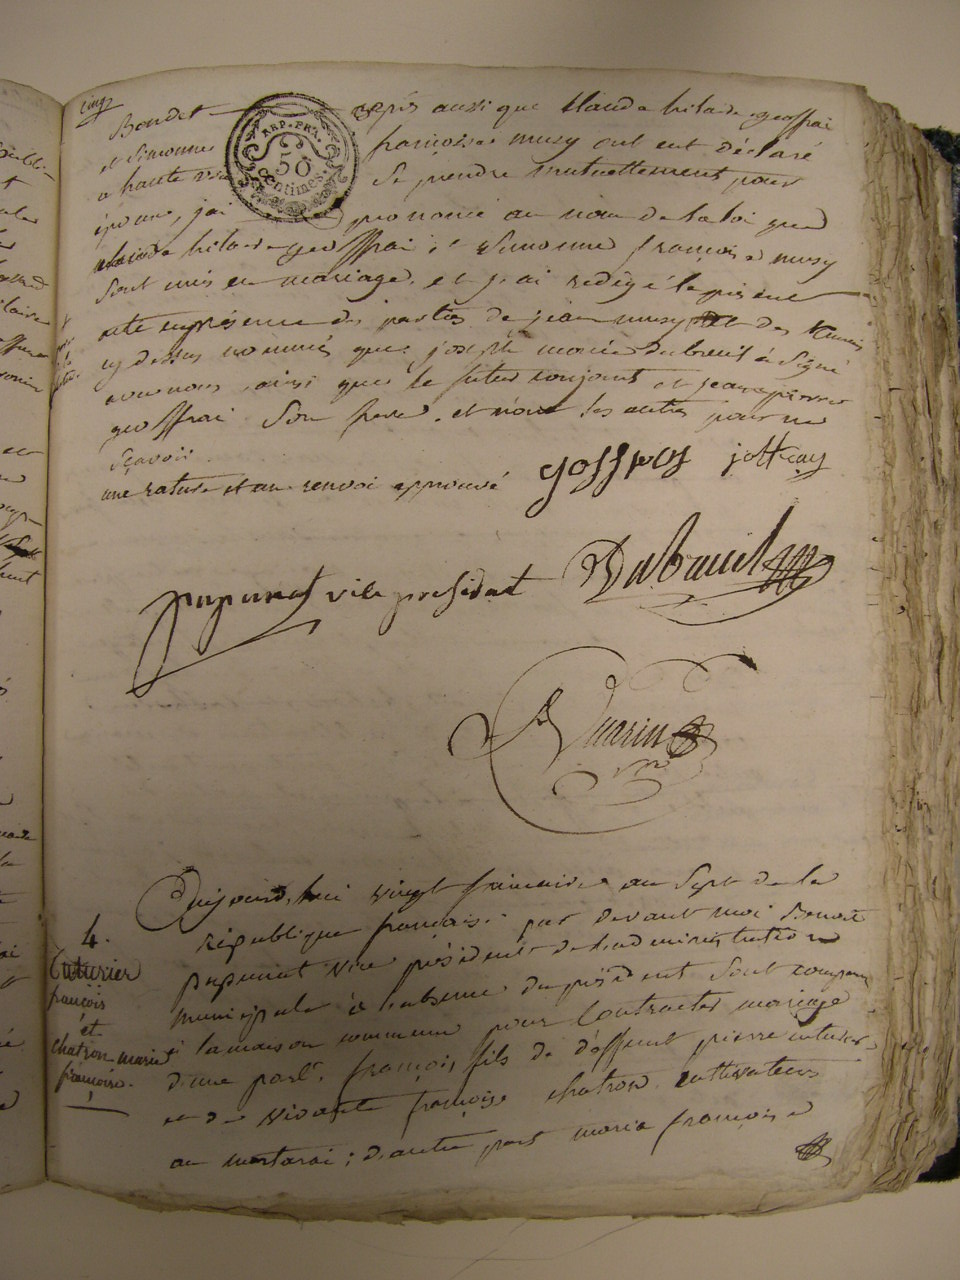 cinq
Boudet après aussi que Claude hilaire geoffrai
et Simonne françoise musy ont eut déclaré
a haute voix Se prendre mutuellement pour
époux, jai prononcé au nom de la loi que
claude hilaire geoffrai, et Simonne françoise musy
Sont unis en mariage, et j'ai redigé le présent
acte en présence des parties de jean musy et des temoins
cy dessus nommés que joseph marie dubreuil à Signé
avec nous, ainsi que le futur conjoint et jean pierre
geoffrai Son frere. et non les autres pour ne
Sçavoir.
une rature et un renvoi approuvé
REP. FRA.
50
centimes.
geoffray
papunat vice président Dubreuil
Guarin
4.
Cuturier
françois
et
chatron marie
françoise.
Aujourd'hui vingt frimaire an Sept de la
République française par devant moi Benoit
papunat vice président de l'administration
municipale à l'absence du président Sont comparu
à la maison commune pour Contracter mariage
d'une part, françois, fils de deffunt pierre cuturier
et de vivante françoise chatron cultivateurs
au montarai; d'autre part marie françoise